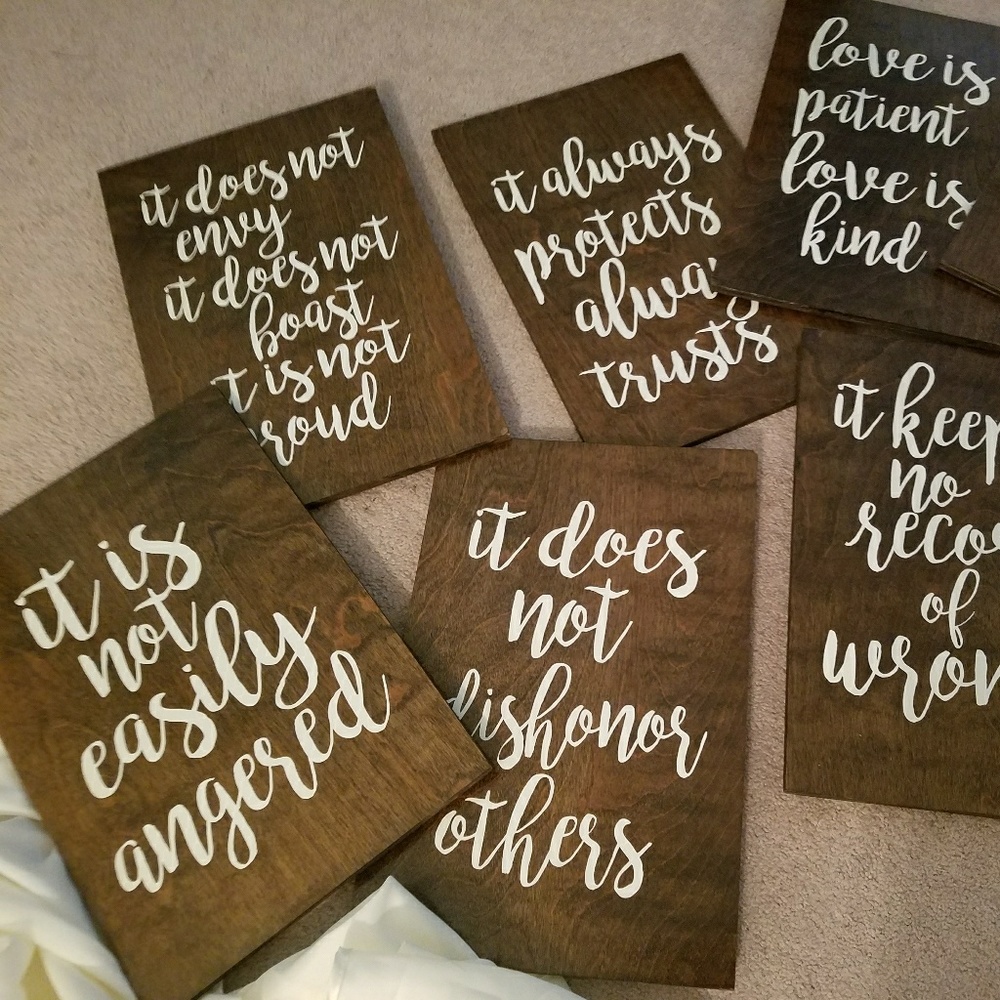 it does not
envy
it does not
boast
t is not
roud
it always
protects
always
trusts
love is
patient
love is
kind
it is
not
easily
angered
it does
not
dishonor
others
it keep
no
reco
of
wron